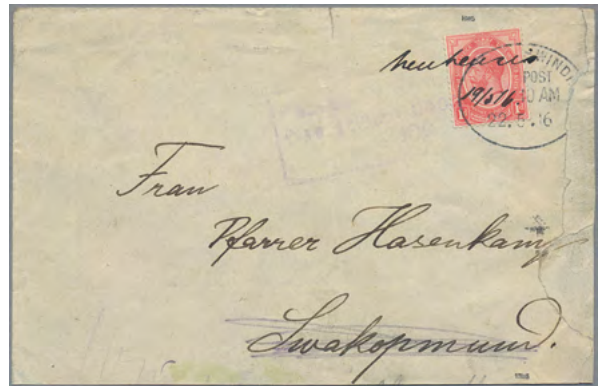 Neuheusis
19/5/16
WIND
POST
30 AM
22. 5. 16
Frau
Pfarrer Hasenkamp
Swakopmund.